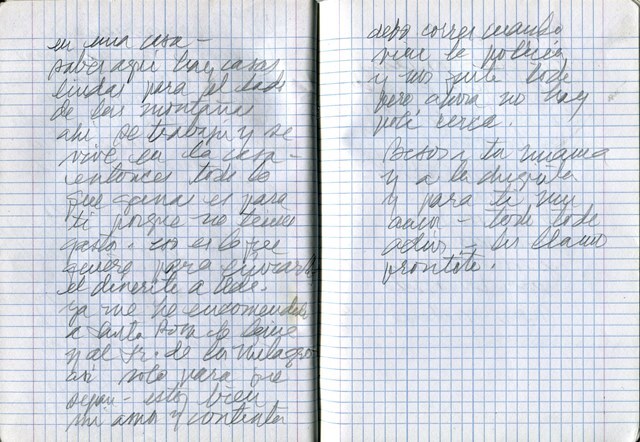 en una casa -
sabes aqui hay casas
lindas para el lado
de las montañas
ahi se trabaja y se
vive en la casa -
entonces todo lo
que ganas es para
ti porque no tienes
gasto - eso es lo que
quiero para enviarles
el dinerito a Uds.
ya me he encomendado
a Santa Rosa de Lima
y al Sr. de los Milagros
asi solo para que
sepan - estoy bien
mi amor y contenta
debo correr cuando
viene la policia
y nos quita todo
pero ahora no hay
poli cerca.
Besos y tu mama
y a la chiquita
y para ti mi
amor - todo todo
adios - les llamo
prontito.